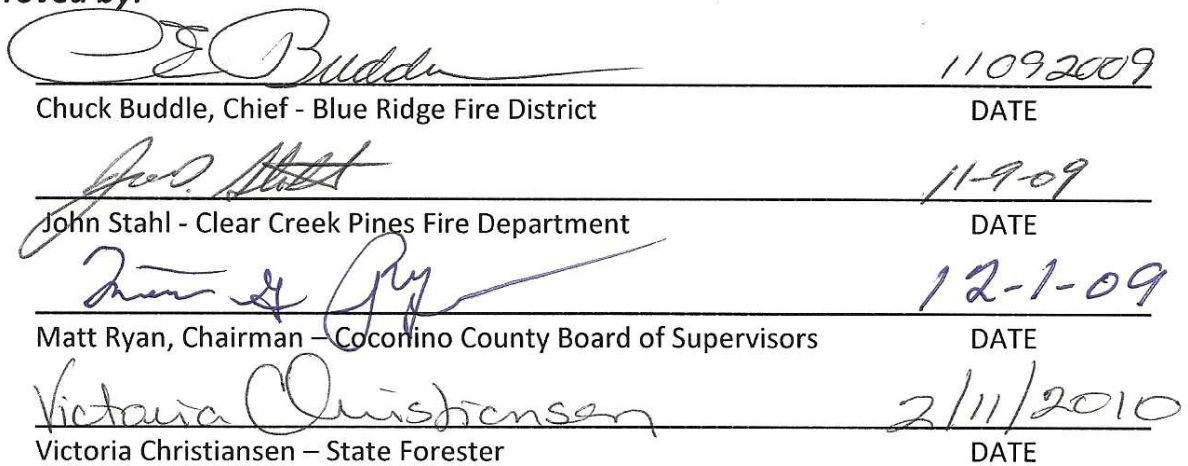 roved by:
C E Buddle 11092009
Chuck Buddle, Chief - Blue Ridge Fire District DATE
11-9-09
John Stahl - Clear Creek Pines Fire Department DATE
12-1-09
Matt Ryan, Chairman – Coconino County Board of Supervisors DATE
Victoria Christiansen 2/11/2010
Victoria Christiansen – State Forester DATE